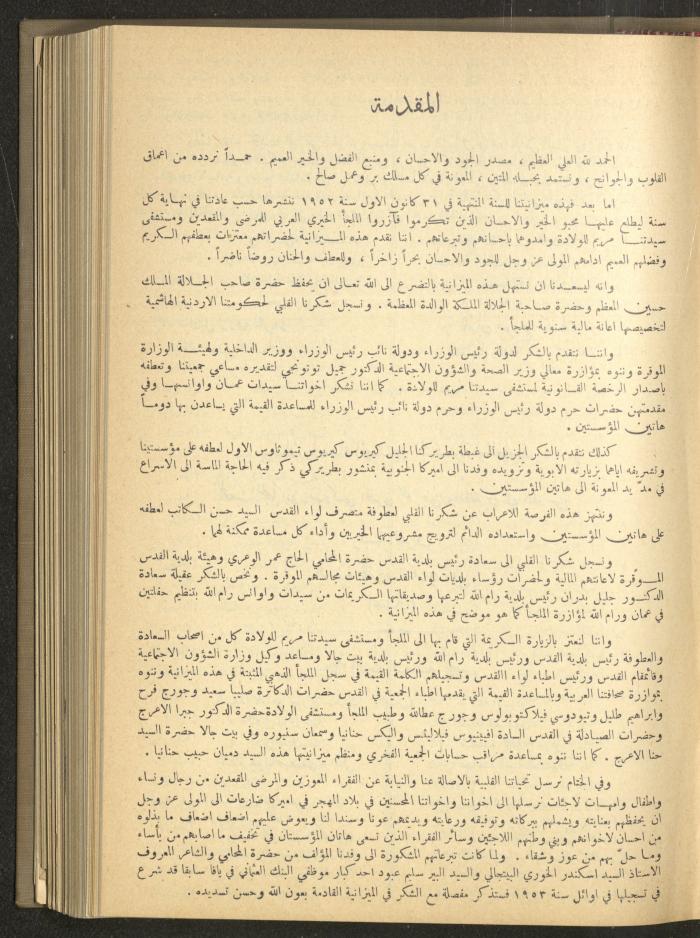 المقدمة
الحمد لله العلي العظيم ، مصدر الجود والاحسان ، ومنبع الفضل والخير العميم . حمـداً نردده من اعماق
القلوب والجوانح ، ونستمد بحبـله المتين ، المعونة في كل مسلك بر وعمل صالح .
اما بعد فهذه ميزانيتنا للسنة المنتهية في ٣١ كانون الاول سنة ١٩٥٢ ننشرها حسب عادتنا في نهـاية كل
سنة ليطلع عليهـا محبو الخير والاحسان الذين تكرموا فآزروا الملجأ الخيري العربي للمرضى والمقعدين ومستشفى
سيدتنـــا مريم للولادة وامدوهما باحسانهم وتبرعاتهم . اننا نقدم هذه المـيزانية لحضراتهم معتزات بعطفهم الـكريم
وفضلهم العميم ادامهم المولى عز وجل للجود والاحسان بحراً زاخراً ، وللعطف والحنان روضاً ناضراً .
وانه ليسعـدنا ان نستهل هـذه الميزانية بالتضرع الى الله تعـالى ان يحفظ حضرة صاحب الجـلالة المـلك
حسين المعظم وحضرة صـاحبة الجلالة الملـكة الوالدة المعظمة . ونسجل شكرنا القلبي لحكومتنا الاردنية الهاشمية
لتخصيصهـا اعانة مالية سنوية للملجأ .
واننـا نتقدم بالشكر لدولة رئيس الوزراء ودولة نائب رئيس الوزراء ووزير الداخلية ولهيئـــة الوزارة
الموقرة وننوه بمؤازرة معالي وزير الصحة والشؤون الاجتماعية الدكتور جميل توتونجي لتقديره مساعي جمعيتنا وتعطفه
باصدار الرخصة القــانونية لمستشفى سيدتنا مريم للولادة . كما اننا نشكر اخواتنـا سيدات عمـان واوانسهـا وفي
مقدمتهن حضرات حرم دولة رئيس الوزراء وحرم دولة نائب رئيس الوزراء للمساعدة القيمة التي يساعدن بها دومـاً
هاتين المؤسستين .
كذلك نتقدم بالشكر الجزيل الى غبطة بطريركنا الجليل كيريوس كيريوس تيموثاوس الاول لعطفه على مؤسستينا
وتشريفه اياهما بزيارته الابوية وتزويده وفدنا الى اميركا الجنوبية بمنشور بطريركي ذكر فيه الحاجة الماسة الى الاسراع
في مدّ يد المعونة الى هاتين المؤسستين .
وننتهز هذه الفرصة للاعراب عن شكرنا القلبي لعطوفة متصرف لواء القدس السيد حسن الـكاتب لعطفه
على هاتين المؤسستين واستعداده الدائم لترويج مشروعيهما الخيريين وأداء كل مساعدة ممكنة لهما .
ونسجل شكرنا القلبي الى سعادة رئيس بلدية القدس حضرة المحامي الحاج عمر الوعري وهيئة بلدية القدس
المـــوقرة لاعانتهم المالية ولحضرات رؤساء بلديات لواء القدس وهيئات مجالسهم الموقرة . ونخص بالشكر عقيلة سعادة
الدكتـور جليل بدران رئيس بلدية رام الله لتبرعها وصديقاتها الـكريمات من سيدات واوانس رام الله بتنظيم حفلتين
في عمان ورام الله لمؤازرة الملجأ كما هو موضح في هذه الميزانية .
واننا لنعتز بالزيارة الـكريمة التي قام بها الى الملجأ ومستشفى سيدتنا مريم للولادة كل من اصحاب السعادة
والعطوفة رئيس بلدية القدس ورئيس بلدية رام الله ورئيس بلدية بيت جالا ومساعد وكيل وزارة الشؤون الاجتماعية
وقائمقام القدس ورئيس اطباء لواء القدس وتسجيلهم الكلمة القيمة في سجل الملجأ الذهبي المثبتة في هذه الميزانية وننوه
بموازرة صحافتنا العربية وبالمساعدة القيمة التي يقدمها اطباء الجمعية في القدس حضرات الدكاترة صليبا سعيد وجورج فرح
وابراهيم طليل وتيودوسي فيلاكتوبولوس وجورج عطالله وطبيب الملجأ ومستشفى الولادة حضرة الدكتور جبرا الاعرج
وحضرات الصيـادلة في القدس السادة افيثينيوس فيلاليثس واليكس حنانيا وسمعان سنيوره وفي بيت جالا حضرة السيد
حنا الاعرج . كما اننا ننوه بمساعدة مراقب حسابات الجمعية الفخري ومنظم ميزانيتها هذه السيد دميان حبيب حنانيا .
وفي الختام نرسل تحياتنا القلبية بالاصالة عنا والنيابة عن الفقراء المعوزين والمرضى المقعدين من رجال ونساء
واطفال وامهـات لاجئات نرسلها الى اخواننا واخواتنا المحسنين في بلاد المهجر في اميركا ضارعات الى المولى عز وجل
ان يحفظهم بعنايته ويشملهم ببركاته وتوفيقه ورعايته ويديمهم عونا وسندا لنا ويعوض عليهم اضعاف اضعاف ما بذلوه
من احسان لاخوانهم وبني وطنهم اللاجئين وسائر الفقراء الذين تسعى هاتان المؤسستان في تخفيف ما اصابهم من بأساء
ومـا حلّ بهم من عوز وشقاء . ولما كانت تبرعاتهم المشكورة الى وفدنا المؤلف من حضرة المحامي والشاعر المعروف
الاستاذ السيد اسكندر الخوري البيتجالي والسيد البير سليم عبود احد كبار موظفي البنك العثماني في يافا سابقا قد شرع
في تسجيلها في اوائل سنة ١٩٥٣ فستذكر مفصلة مع الشكر في الميزانية القادمة بعون الله وحسن تسديده .